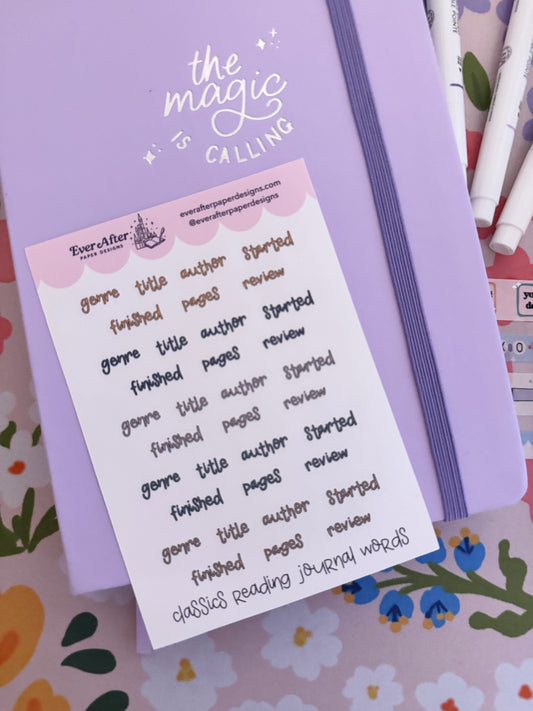 the
magic
IS CALLING
Ever After
PAPER DESIGNS
everafterpaperdesigns.com
@everafterpaperdesigns
genre title author started
finished pages review
genre title author started
finished pages review
genre title author started
finished pages review
genre title author started
finished pages review
genre title author started
finished pages review
classics Reading Journal Words